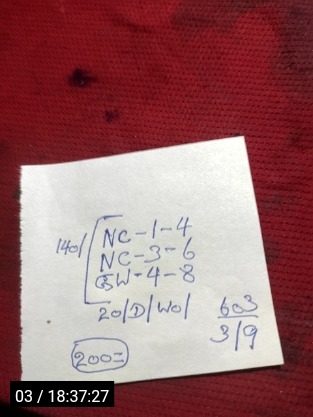 NC-1-4
140/ NC-3-6
GW-4-8
20/D/WO/
603
3/9
200=
03 / 18:37:27